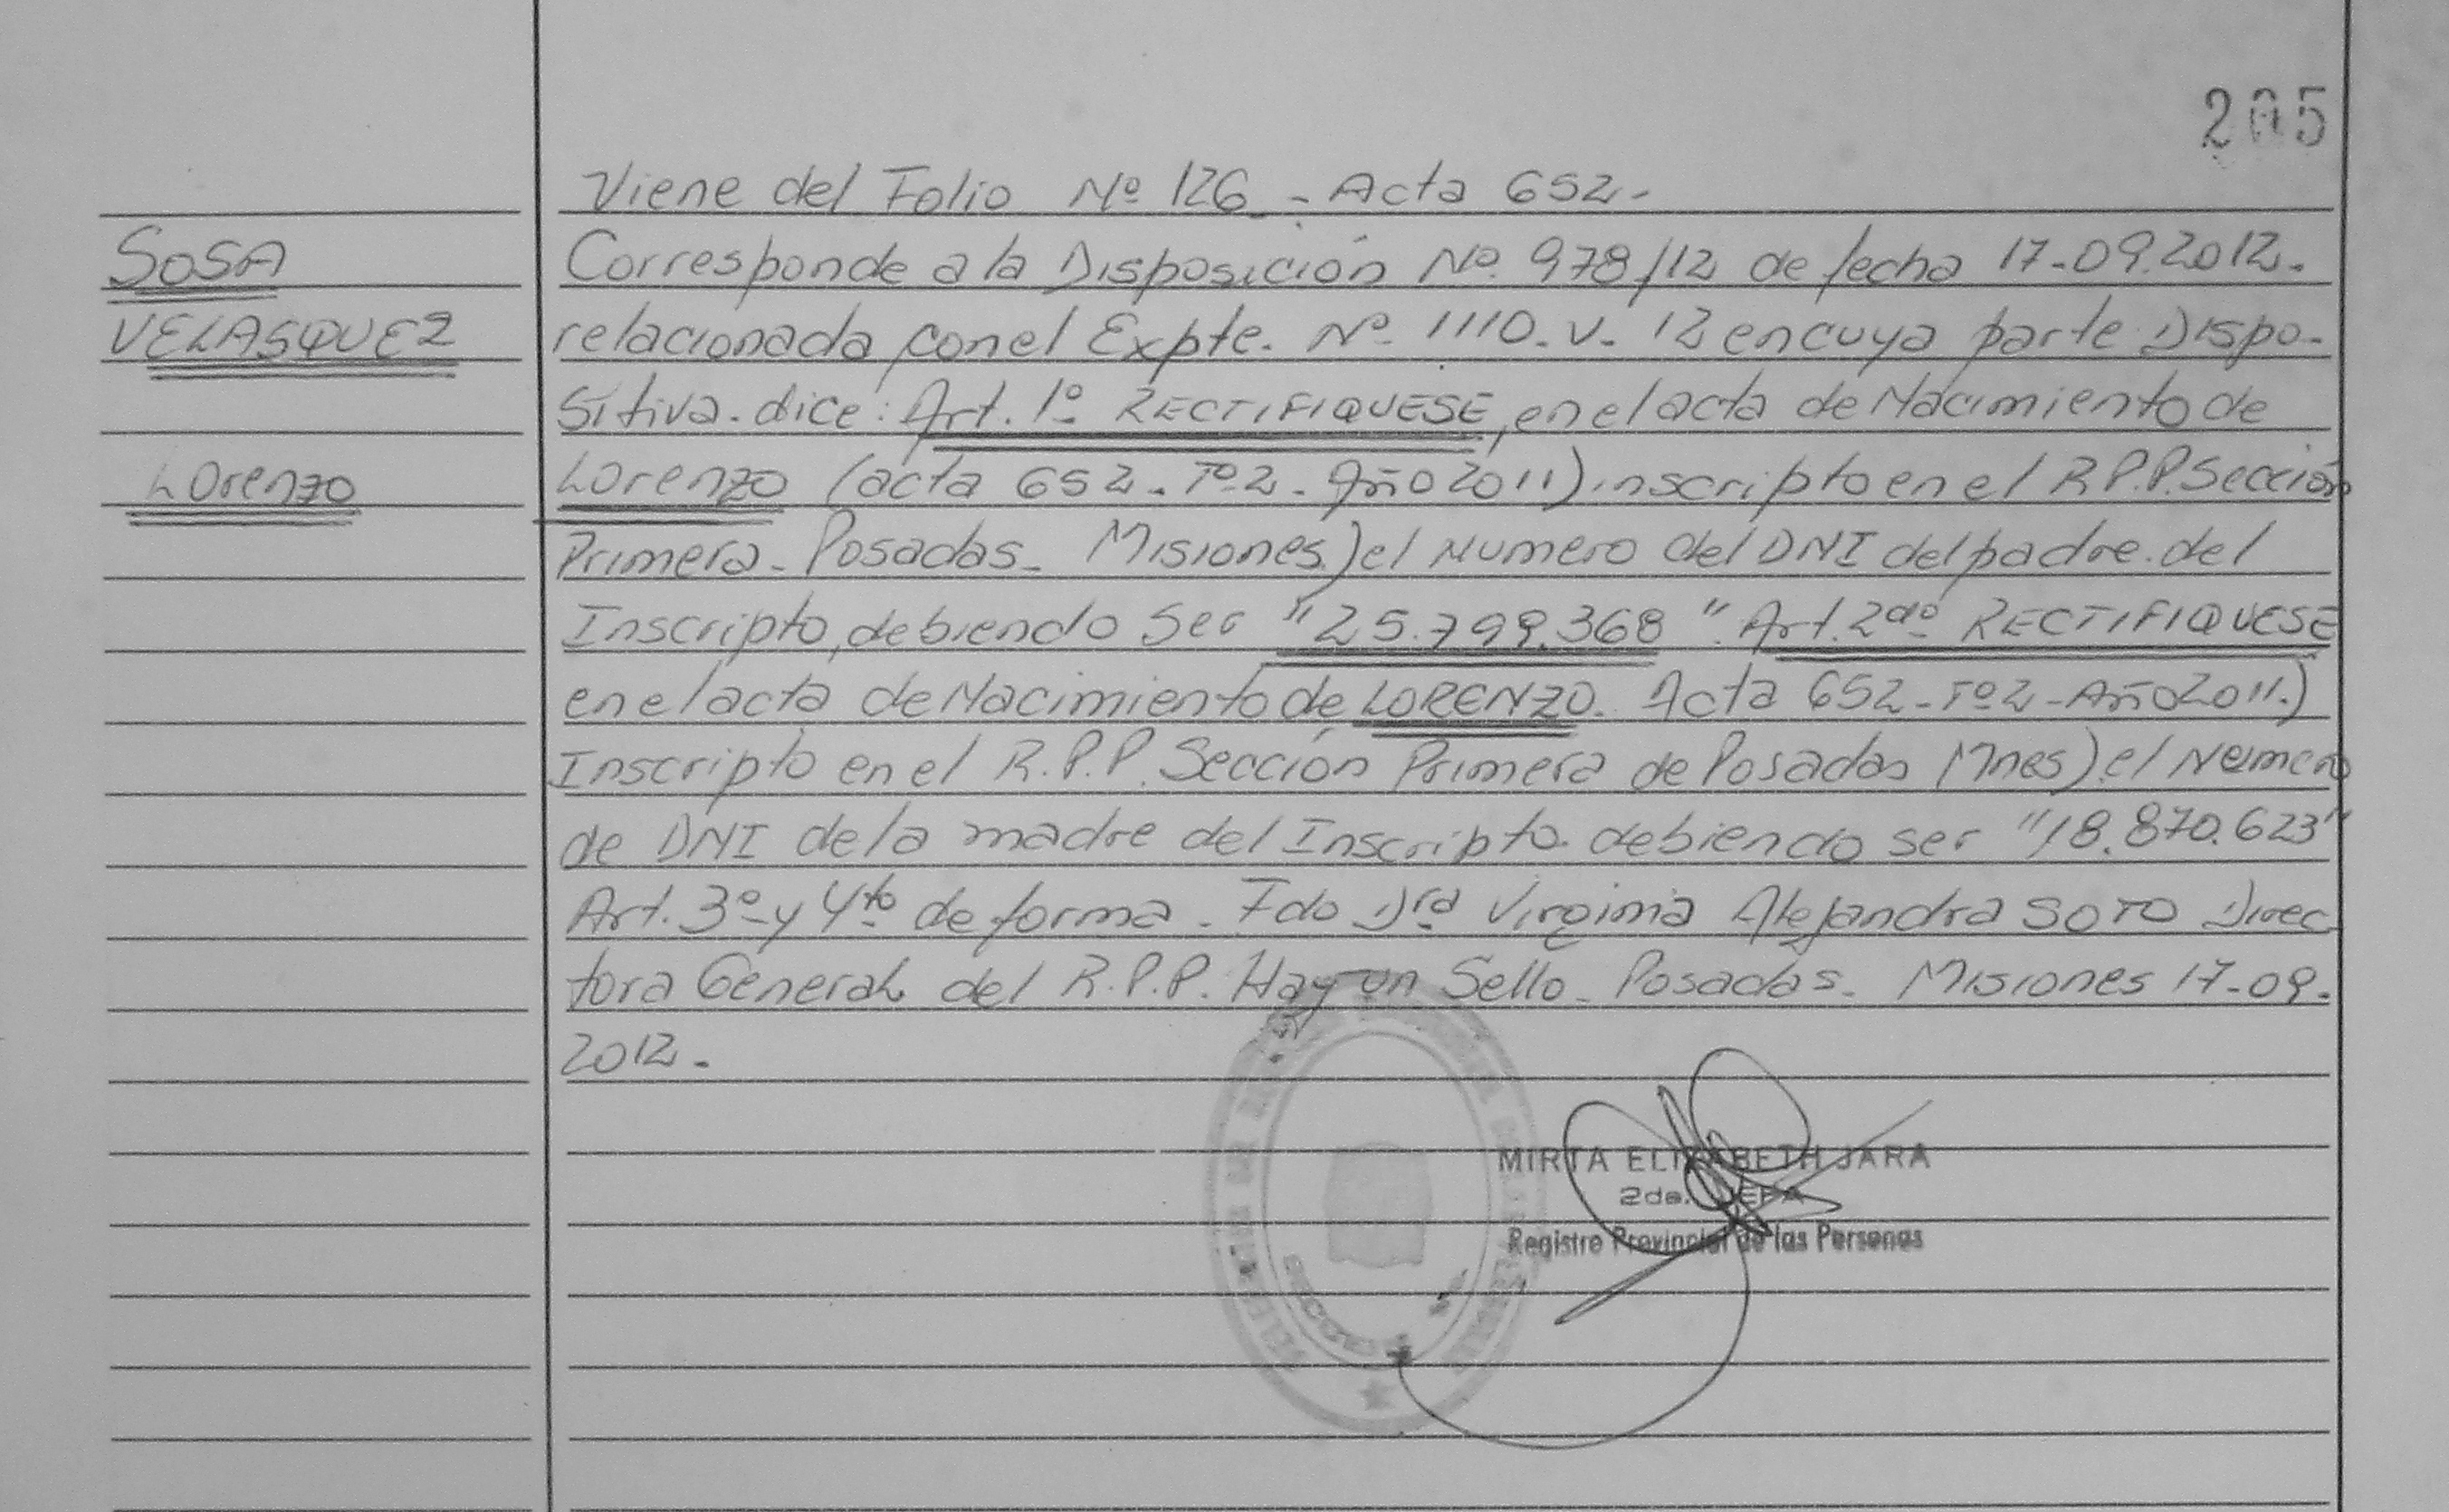 205
Viene del Folio Nº 126 - Acta 652.
SOSA
Corresponde a la Disposición Nº 978/12 de fecha 17-09.2012.
VELASQUEZ
relacionada con el Expte. Nº 1110-V-12 en cuya parte Dispo-
sitiva. dice: Art. 1º RECTIFIQUESE, en el acta de Nacimiento de
Lorenzo
Lorenzo (acta 652 - Tº 2 - Año 2011) inscripto en el R.P.P. Sección
Primera - Posadas - Misiones) el Numero del DNI del padre del
Inscripto, debiendo ser "25.799.368". Art. 2do RECTIFIQUESE
en el acta de Nacimiento de LORENZO. Acta 652 - Tº 2 - Año 2011.)
Inscripto en el R.P.P. Sección Primera de Posadas Mnes) el Numero
de DNI de la madre del Inscripto. debiendo ser "18.870.623"
Art. 3º y 4to de forma. Fdo Dra Virginia Alejandra SOTO Direc
tora General del R.P.P. Hay un Sello - Posadas - Misiones 17-09.
2012.-
MIRTA ELIZABETH JARA
2da. JEFA
Registro Provincial de las Personas